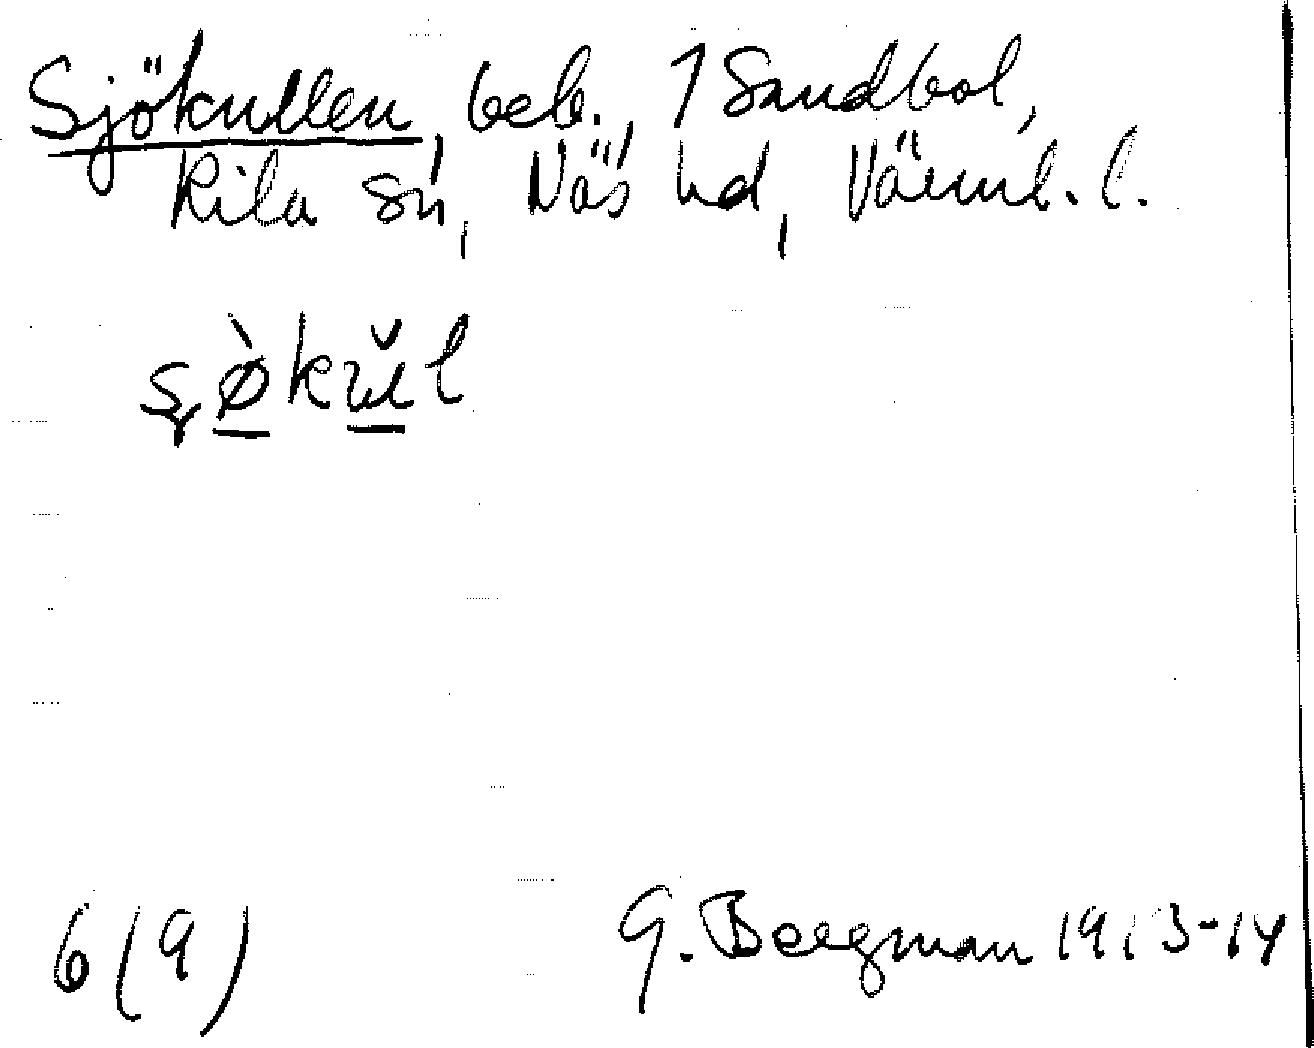 Sjökullen, beb., 1 Sandbol,
Kila sn, Näs hd, Värml. l.
6 (9)
G. Bergman 1913-14